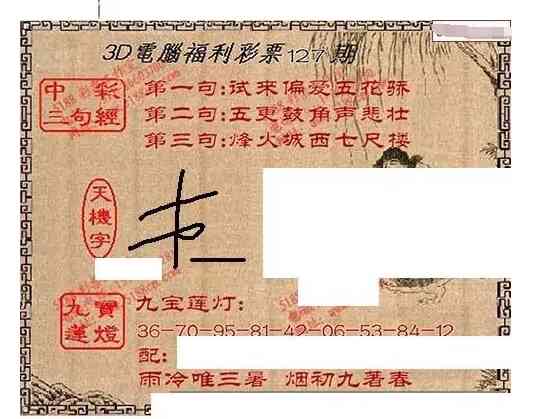 3D電腦福利彩票127期
中彩
三句經
第一句:试来偏爱五花骄
第二句:五更鼓角声悲壮
第三句:烽火城西七尺楼
天機字
九寶
蓮燈
九宝莲灯:
36-70-95-81-42-06-53-84-12
配:
雨冷唯三暑 烟初九著春